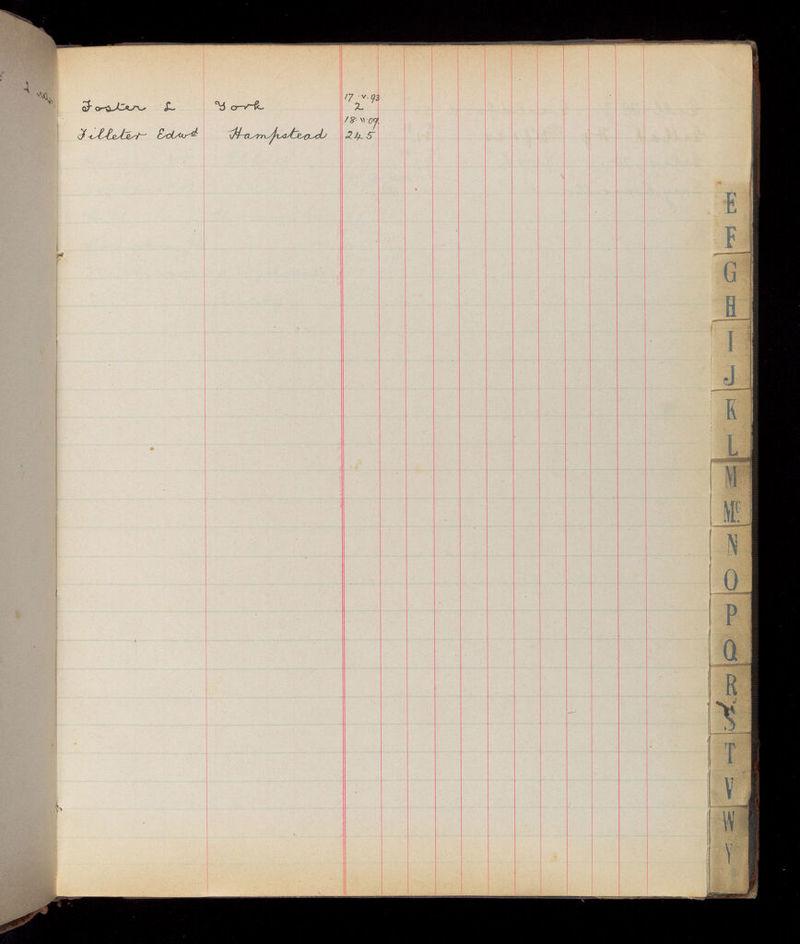 17·V·93
Foster L York 2
18·VI·09
Filleter Edwd Hampstead 245
E
F
G
H
I
J
K
L
M
Mc
N
O
P
Q
R
S
T
V
W
Y